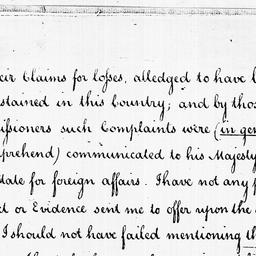 eir Claims for losses, alledged to have b
stained in this Country; and by thos
issioners such Complaints were (in gen
prehend) communicated to his Majesty
tate for foreign affairs. I have not any p
ct or Evidence sent me to offer upon the
I should not have failed mentioning th